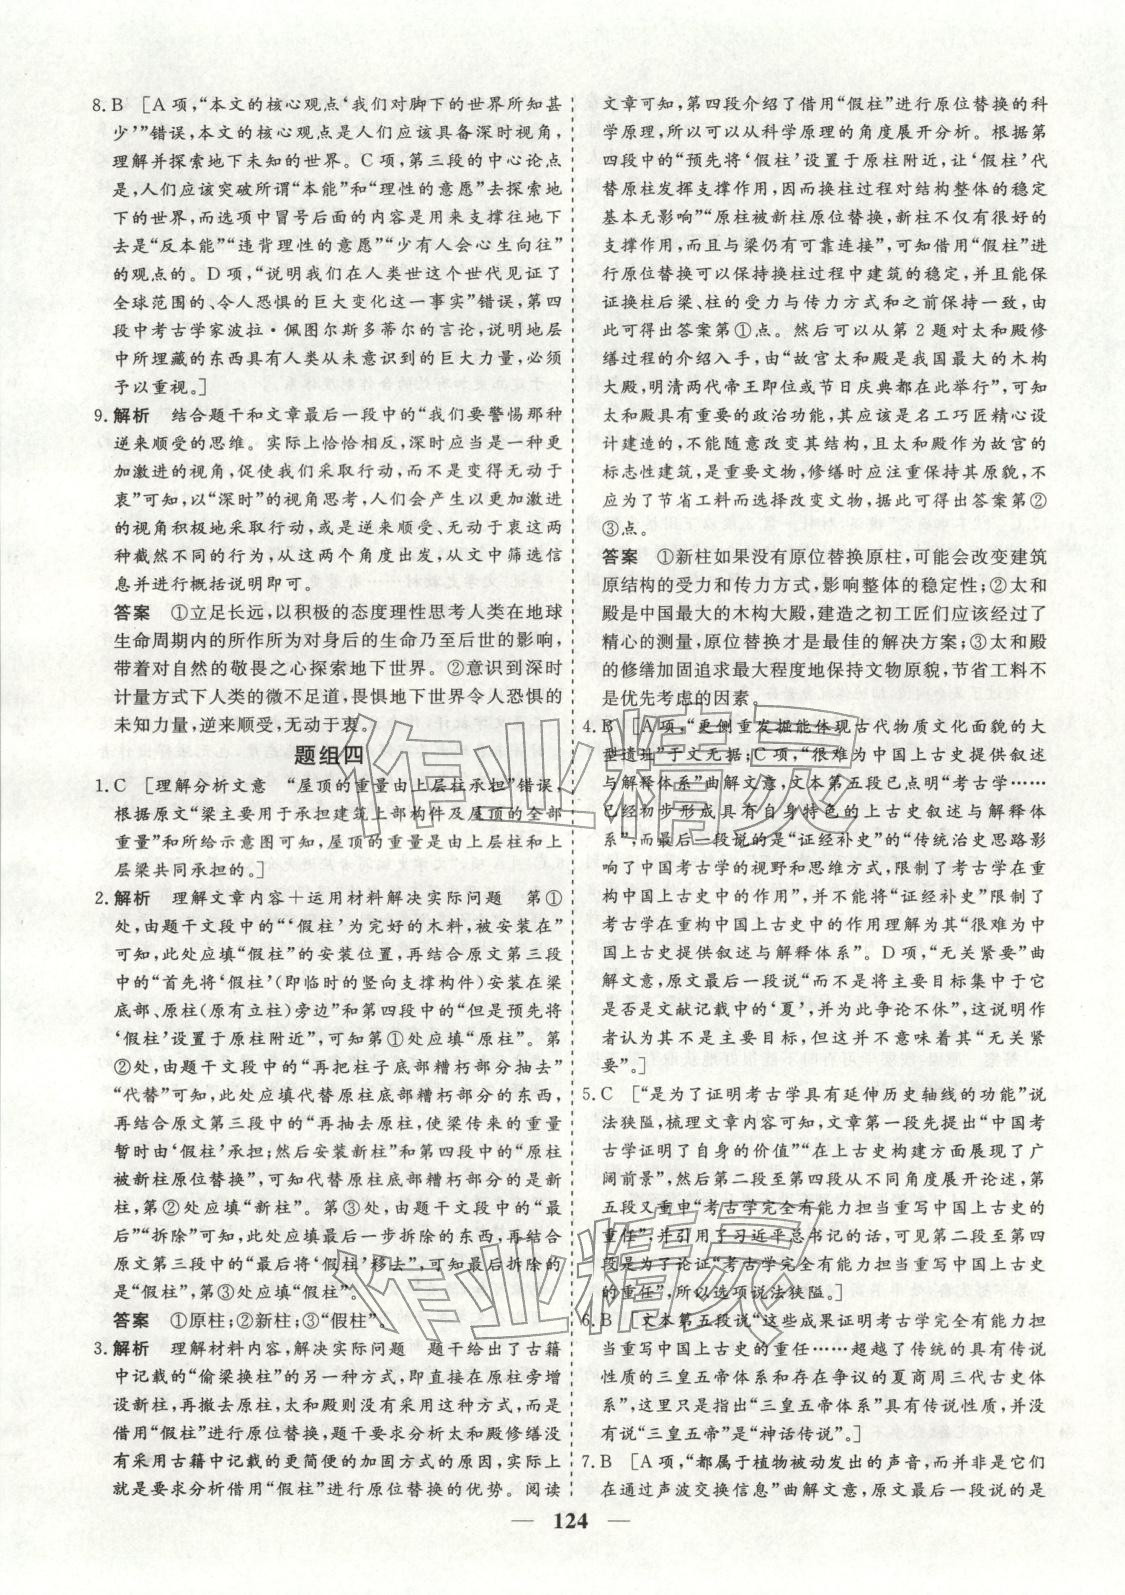 8. B　[A 项，“本文的核心观点‘我们对脚下的世界所知甚
少’”错误，本文的核心观点是人们应该具备深时视角，
理解并探索地下未知的世界。C 项，第三段的中心论点
是，人们应该突破所谓“本能”和“理性的意愿”去探索地
下的世界，而选项中冒号后面的内容是用来支撑往地下
去是“反本能”“违背理性的意愿”“少有人会心生向往”
的观点的。D 项，“说明我们在人类世这个世代见证了
全球范围的、令人恐惧的巨大变化这一事实”错误，第四
段中考古学家波拉·佩图尔斯多蒂尔的言论，说明地层
中所埋藏的东西具有人类从未意识到的巨大力量，必须
予以重视。]
9. 解析　结合题干和文章最后一段中的“我们要警惕那种
逆来顺受的思维。实际上恰恰相反，深时应当是一种更
加激进的视角，促使我们采取行动，而不是变得无动于
衷”可知，以“深时”的视角思考，人们会产生以更加激进
的视角积极地采取行动，或是逆来顺受、无动于衷这两
种截然不同的行为，从这两个角度出发，从文中筛选信
息并进行概括说明即可。
答案　①立足长远，以积极的态度理性思考人类在地球
生命周期内的所作所为对身后的生命乃至后世的影响，
带着对自然的敬畏之心探索地下世界。②意识到深时
计量方式下人类的微不足道，畏惧地下世界令人恐惧的
未知力量，逆来顺受，无动于衷。
题组四
1. C　[理解分析文意　“屋顶的重量由上层柱承担”错误，
根据原文“梁主要用于承担建筑上部构件及屋顶的全部
重量”和所给示意图可知，屋顶的重量是由上层柱和上
层梁共同承担的。]
2. 解析　理解文章内容＋运用材料解决实际问题　第①
处，由题干文段中的“‘假柱’为完好的木料，被安装在”
可知，此处应填“假柱”的安装位置，再结合原文第三段
中的“首先将‘假柱’（即临时的竖向支撑构件）安装在梁
底部、原柱（原有立柱）旁边”和第四段中的“但是预先将
‘假柱’设置于原柱附近”，可知第①处应填“原柱”。第
②处，由题干文段中的“再把柱子底部糟朽部分抽去”
“代替”可知，此处应填代替原柱底部糟朽部分的东西，
再结合原文第三段中的“再抽去原柱，使梁传来的重量
暂时由‘假柱’承担；然后安装新柱”和第四段中的“原柱
被新柱原位替换”，可知代替原柱底部糟朽部分的是新
柱，第②处应填“新柱”。第③处，由题干文段中的“最
后”“拆除”可知，此处应填最后一步拆除的东西，再结合
原文第三段中的“最后将‘假柱’移去”，可知最后拆除的
是“假柱”，第③处应填“假柱”。
答案　①原柱；②新柱；③“假柱”。
3. 解析　理解材料内容，解决实际问题　题干给出了古籍
中记载的“偷梁换柱”的另一种方式，即直接在原柱旁增
设新柱，再撤去原柱，太和殿则没有采用这种方式，而是
借用“假柱”进行原位替换，题干要求分析太和殿修缮仍
没有采用古籍中记载的更简便的加固方式的原因，实际上
就是要求分析借用“假柱”进行原位替换的优势。阅读
文章可知，第四段介绍了借用“假柱”进行原位替换的科
学原理，所以可以从科学原理的角度展开分析。根据第
四段中的“预先将‘假柱’设置于原柱附近，让‘假柱’代
替原柱发挥支撑作用，因而换柱过程对结构整体的稳定
基本无影响”“原柱被新柱原位替换，新柱不仅有很好的
支撑作用，而且与梁仍有可靠连接”，可知借用“假柱”进
行原位替换可以保持换柱过程中建筑的稳定，并且能保
证换柱后梁、柱的受力与传力方式和之前保持一致，由
此可得出答案第①点。然后可以从第 2 题对太和殿修
缮过程的介绍入手，由“故宫太和殿是我国最大的木构
大殿，明清两代帝王即位或节日庆典都在此举行”，可知
太和殿具有重要的政治功能，其应该是名工巧匠精心设
计建造的，不能随意改变其结构，且太和殿作为故宫的
标志性建筑，是重要文物，修缮时应注重保持其原貌，不
应为了节省工料而选择改变文物，据此可得出答案第②
③点。
答案　①新柱如果没有原位替换原柱，可能会改变建筑
原结构的受力和传力方式，影响整体的稳定性；②太和
殿是中国最大的木构大殿，建造之初工匠们应该经过了
精心的测量，原位替换才是最佳的解决方案；③太和殿
的修缮加固追求最大程度地保持文物原貌，节省工料不
是优先考虑的因素。
4. B　[A 项，“更侧重发掘能体现古代物质文化面貌的大
型遗址”于文无据；C 项，“很难为中国上古史提供叙述
与解释体系”曲解文意，文本第五段已点明“考古学……
已经初步形成具有自身特色的上古史叙述与解释体
系”，而最后一段说的是“证经补史”的“传统治史思路影
响了中国考古学的视野和思维方式，限制了考古学在重
构中国上古史中的作用”，并不能将“证经补史”限制了
考古学在重构中国上古史中的作用理解为其“很难为中
国上古史提供叙述与解释体系”。D 项，“无关紧要”曲
解文意，原文最后一段说“而不是将主要目标集中于它
是否是文献记载中的‘夏’，并为此争论不休”，这说明作
者认为其不是主要目标，但这并不意味着其“无关紧
要”。]
5. C　[“是为了证明考古学具有延伸历史轴线的功能”说
法狭隘，梳理文章内容可知，文章第一段先提出“中国考
古学证明了自身的价值”“在上古史构建方面展现了广
阔前景”，然后第二段至第四段从不同角度展开论述，第
五段又重申“考古学完全有能力担当重写中国上古史的
重任”，并引用了习近平总书记的话，可见第二段至第四
段是为了论证“考古学完全有能力担当重写中国上古史
的重任”，所以选项说法狭隘。]
6. B　[文本第五段说“这些成果证明考古学完全有能力担
当重写中国上古史的重任……超越了传统的具有传说
性质的三皇五帝体系和存在争议的夏商周三代古史体
系”，这里只是指出“三皇五帝体系”具有传说性质，并没
有说“三皇五帝”是“神话传说”。]
7. B　[A 项，“都属于植物被动发出的声音，而并非是它们
在通过声波交换信息”曲解文意，原文最后一段说的是
124
作业精灵
作业精灵